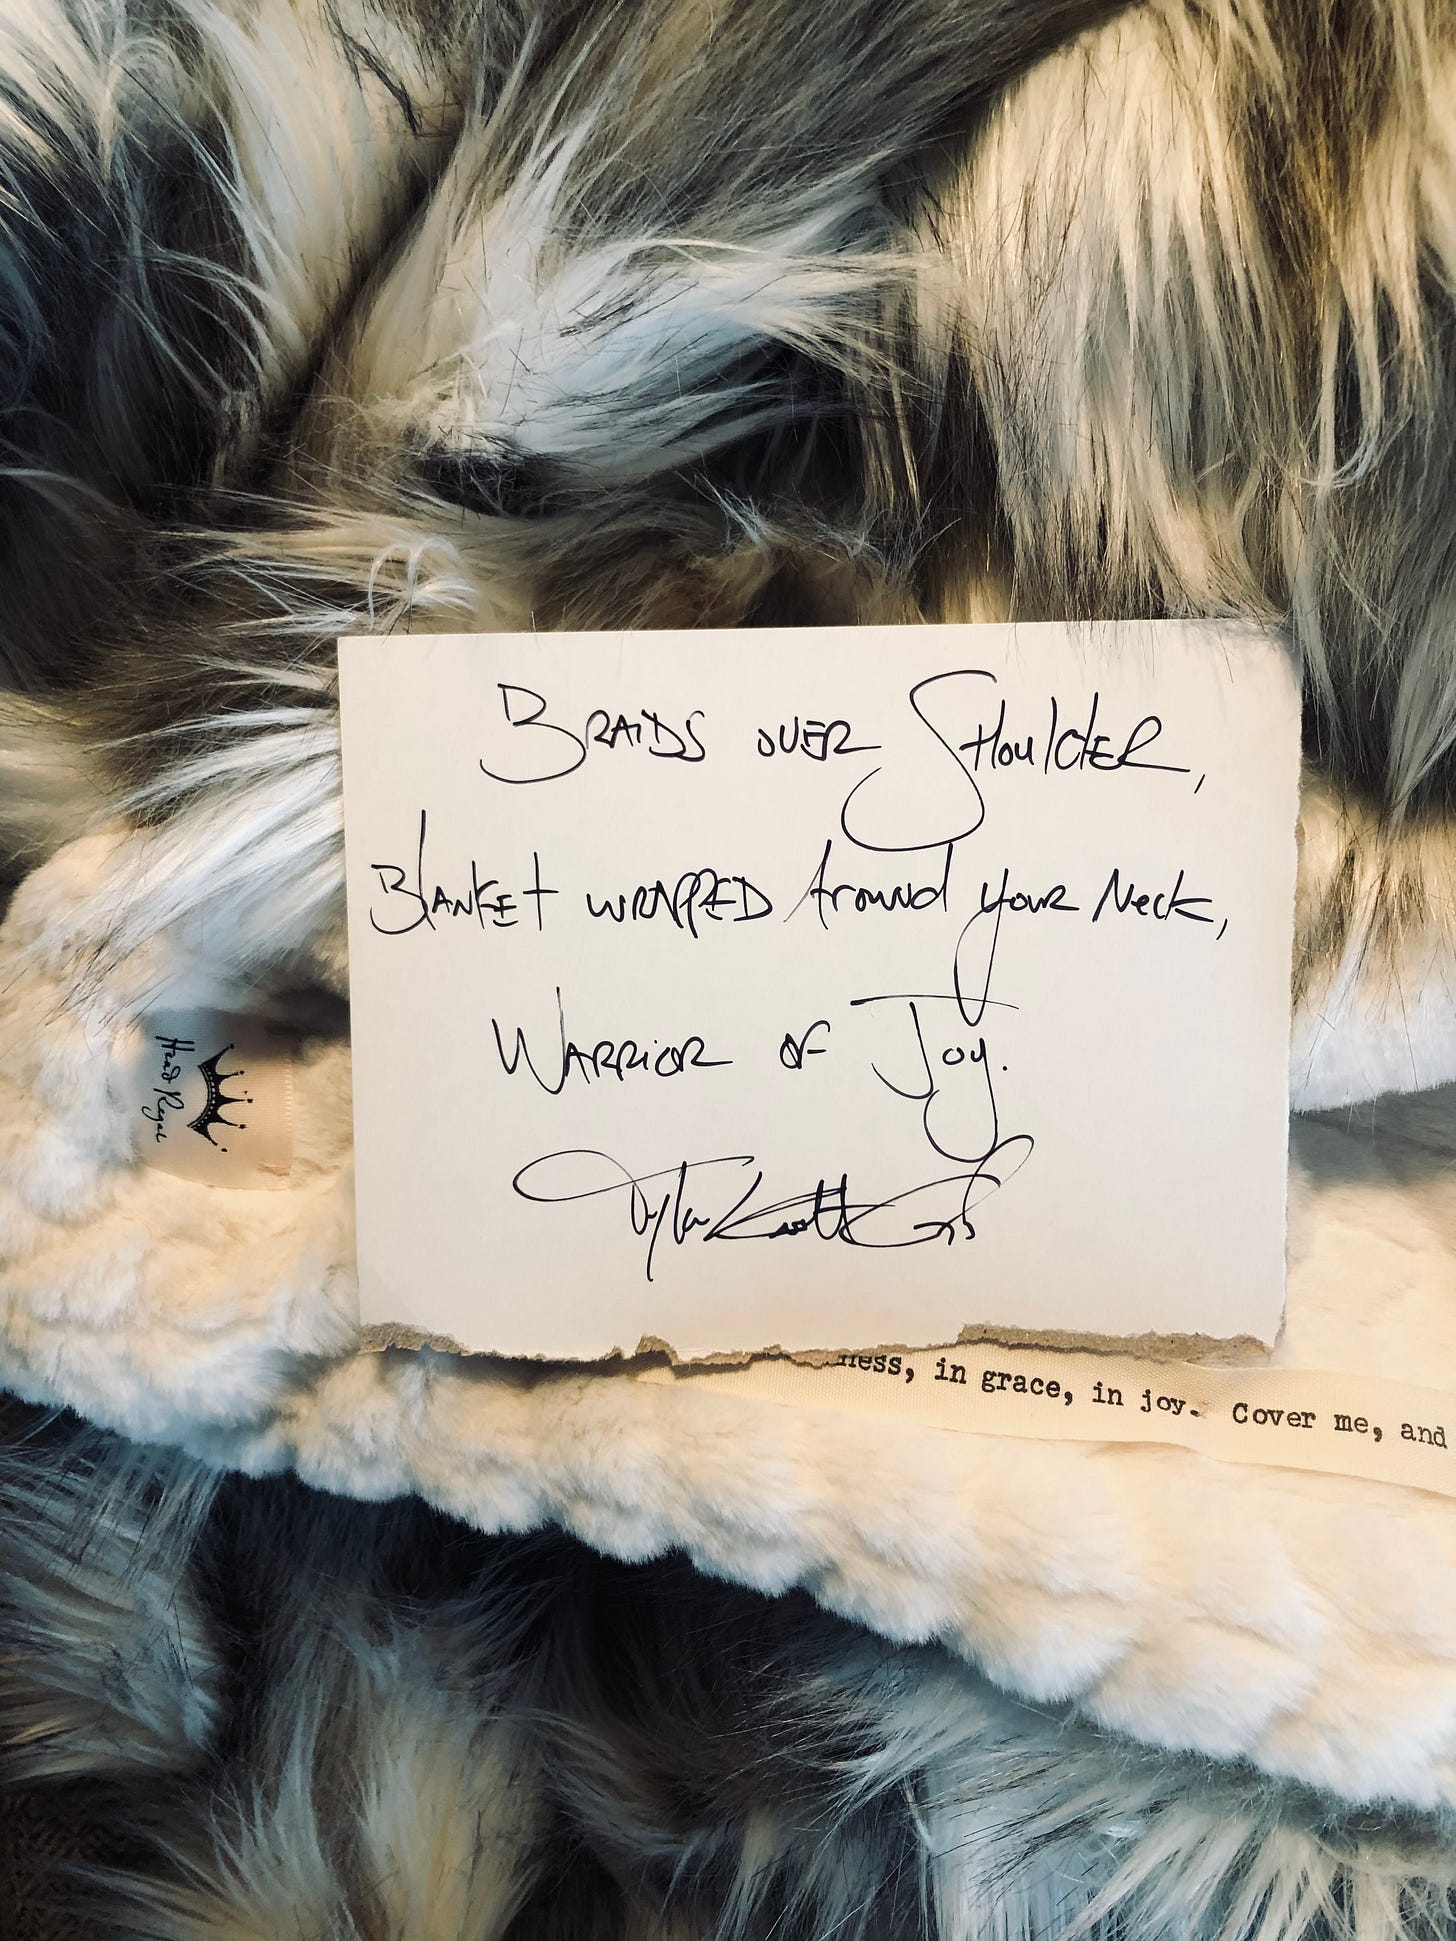 Braids over Shoulder,
Blanket wrapped Around your Neck,
Warrior of Joy.
Tyler Knott Gregson
Head Regal
ness, in grace, in joy. Cover me, and